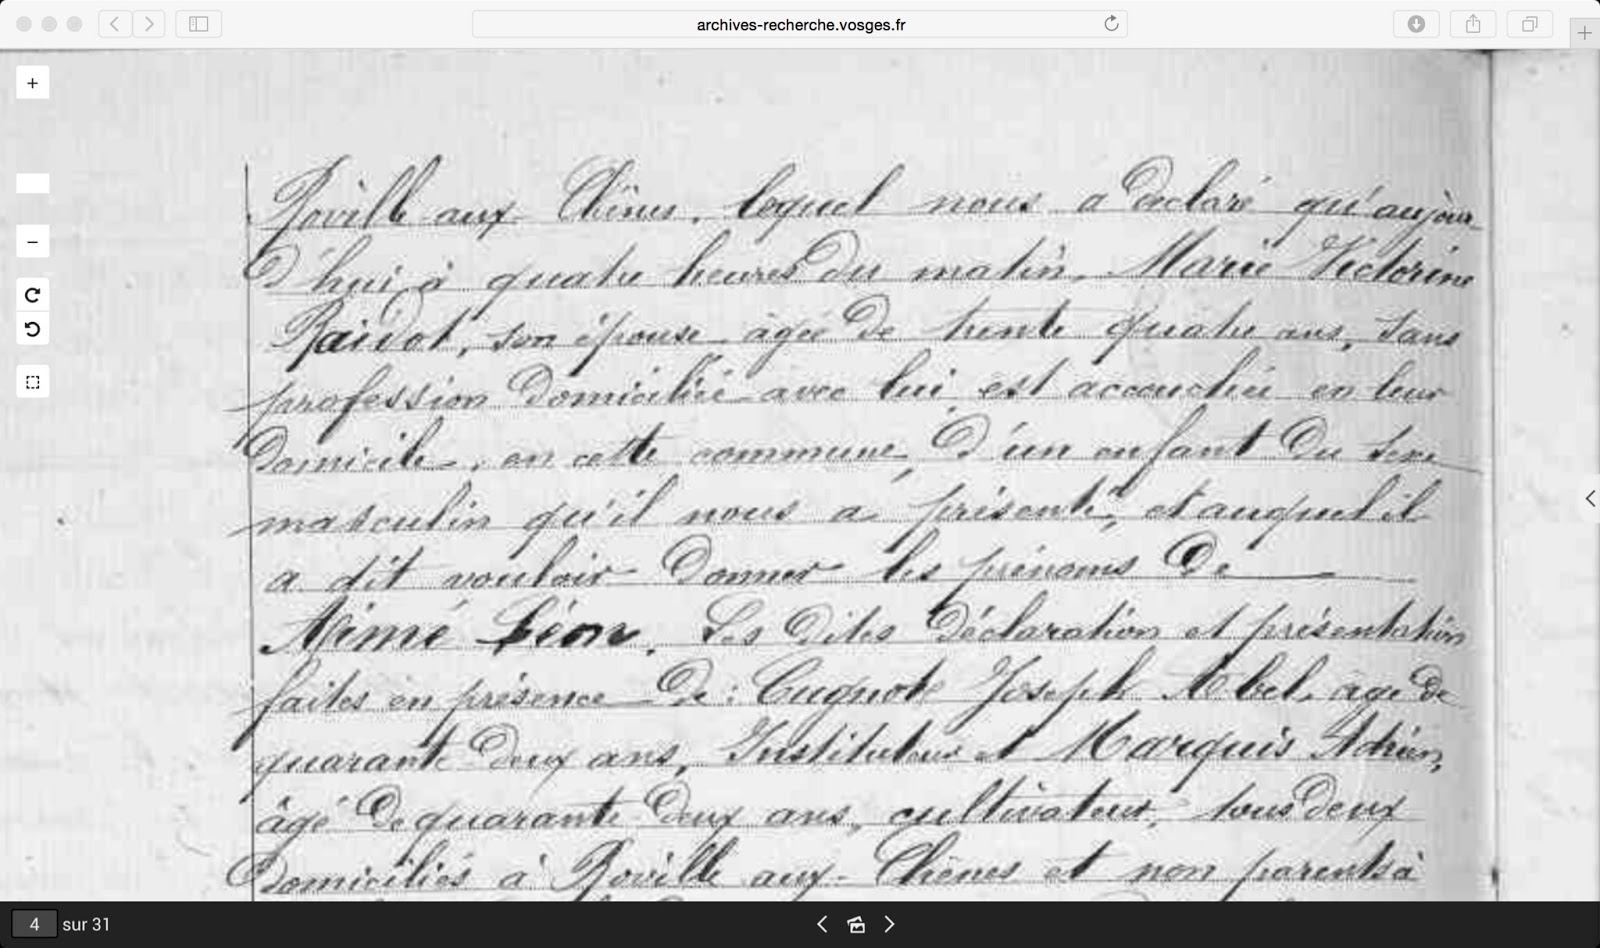 archives-recherche.vosges.fr
Roville aux Chênes, lequel nous a déclaré qu'aujour
d'hui à quatre heures du matin, Marie Victorine
Raidot, son épouse âgée de trente quatre ans, sans
profession domiciliée avec lui est accouchée en leur
domicile, en cette commune, d'un enfant du sexe
masculin qu'il nous a présenté, et auquel il
a dit vouloir donner les prénoms de
Aimé Léon. Les dites déclaration et présentation
faites en présence de : Cugnot Joseph Abel, âgé de
quarante deux ans, Instituteur et Marquis Adrien,
âgé de quarante deux ans, cultivateur, tous deux
domiciliés à Roville aux Chênes et non parents à
4 sur 31